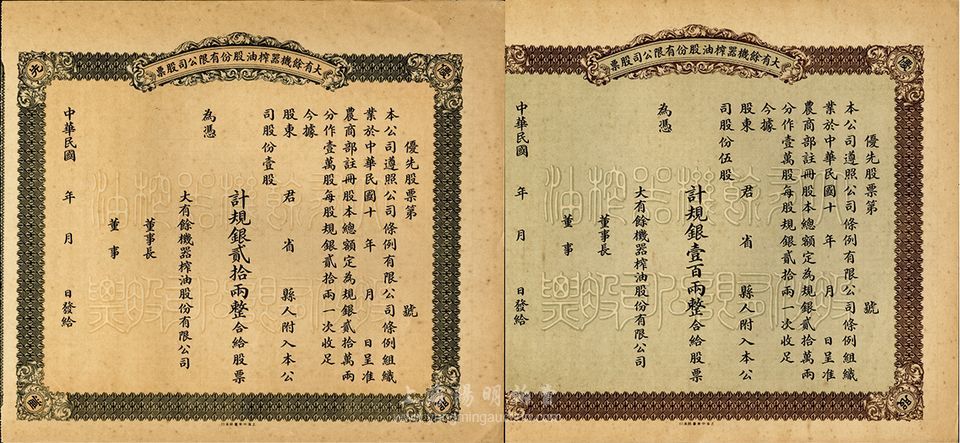 大有餘機器榨油股份有限公司股票
優先股票第 號
本公司遵照公司條例有限公司條例組織
業於中華民國十 年 月 日呈准
農商部註冊股本總額定為規銀貳拾萬兩
分作壹萬股每股規銀貳拾兩一次收足
今據
股東 君 省 縣人附入本公
司股份壹股
計規銀貳拾兩整合給股票
為憑
大有餘機器榨油股份有限公司
董事長
董事
中華民國 年 月 日發給
大有餘機器榨油股份有限公司股票
優先股票第 號
本公司遵照公司條例有限公司條例組織
業於中華民國十 年 月 日呈准
農商部註冊股本總額定為規銀貳拾萬兩
分作壹萬股每股規銀貳拾兩一次收足
今據
股東 君 省 縣人附入本公
司股份伍股
計規銀壹百兩整合給股票
為憑
大有餘機器榨油股份有限公司
董事長
董事
中華民國 年 月 日發給
上海陽明拍賣